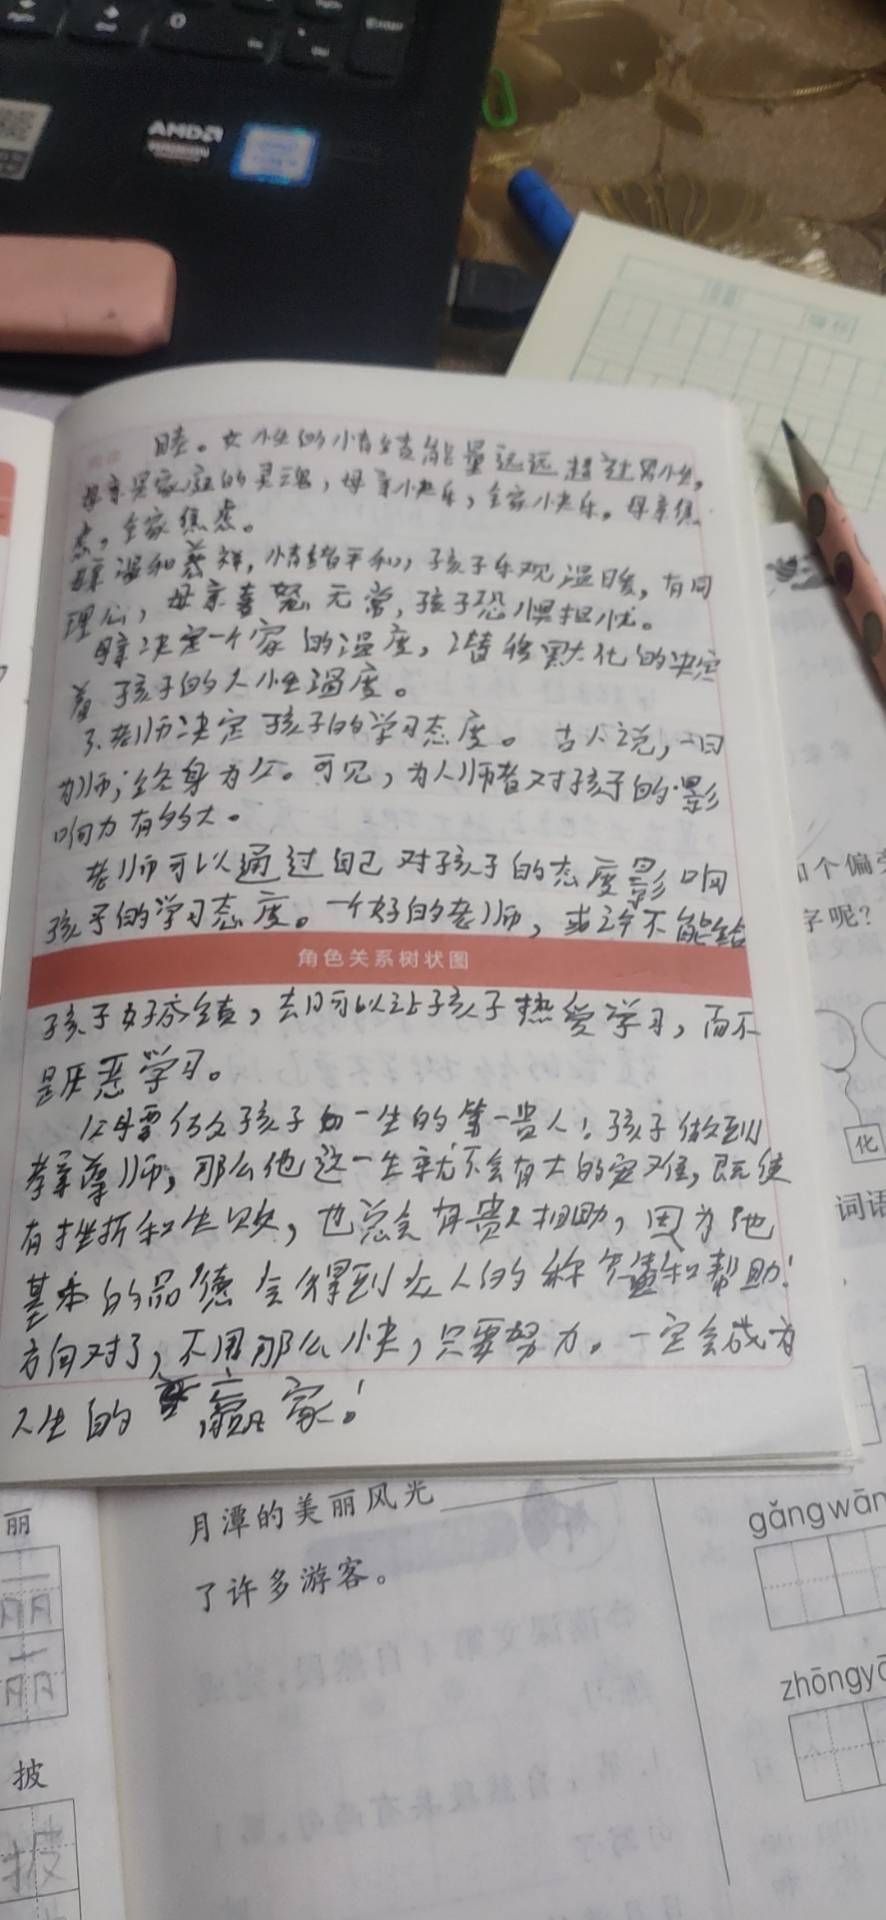 AMD
Enter
睦。女性的情绪能量远远超过男性，
母亲是家庭的灵魂，母亲快乐，全家快乐。母亲焦
虑，全家焦虑。
母亲温和慈祥，情绪平和，孩子乐观温暖，有同
理心，母亲喜怒无常，孩子恐惧担忧。
母亲决定一个家的温度，潜移默化的决定
着孩子的人性温度。
3.老师决定孩子的学习态度。古人说，一日
为师，终身为父。可见，为人师者对孩子的影
响力有多大。
老师可以通过自己对孩子的态度影响
孩子的学习态度。一个好的老师，或许不能给
角色关系树状图
孩子好成绩，却可以让孩子热爱学习，而不
是厌恶学习。
父母要做孩子的一生的第一贵人！孩子做到
孝亲尊师，那么他这一生就不会有大的灾难，既使
有挫折和失败，也总会有贵人相助，因为他
基本的品德会得到众人的称赞和帮助！
方向对了，不用那么快，只要努力。一定会成为
人生的赢家！
个偏旁
字呢？
化
词语
丽
月潭的美丽风光
了许多游客。
披
gǎngwān
zhōngyā